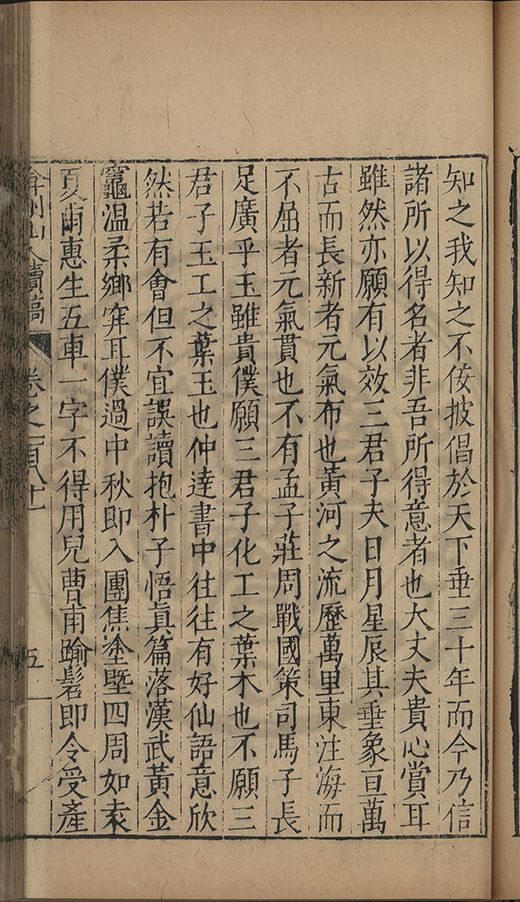 知之我知之不佞披倡於天下垂三十年而今乃信
諸所以得名者非吾所得意者也大丈夫貴心賞耳
雖然亦願有以效三君子夫日月星辰其垂象亘萬
古而長新者元氣布也黃河之流歷萬里東注海而
不屈者元氣貫也不有孟子莊周戰國策司馬子長
足廣乎玉雖貴僕願三君子化工之葉木也不願三
君子玉工之葉玉也仲達書中往往有好仙語意欣
然若有會但不宜誤讀抱朴子悟眞篇落漢武黃金
竈溫柔鄉穽耳僕過中秋即入團焦塗墍四周如袁
夏甫惠生五車一字不得用兒曹甫踰髫即令受產
弇州山人續稿 卷之一百八十一 五